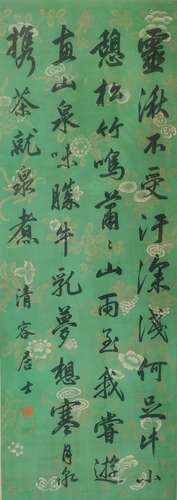 靈湫不受汙深淺何足斗小
憩松竹鳴蕭〻山雨至我嘗遊
直山泉味勝牛乳夢想寒月
攜茶就泉煮
清容居士